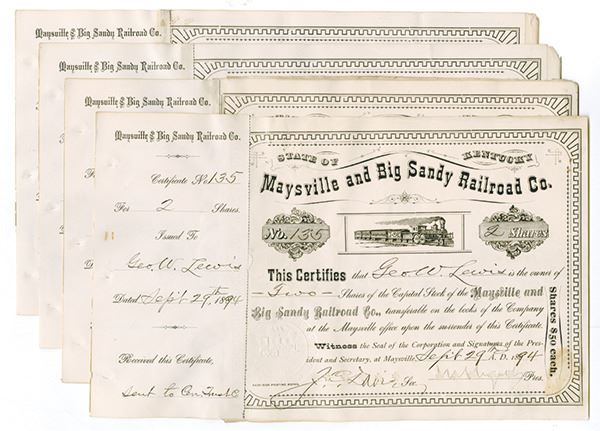 Maysville & Big Sandy Railroad Co.
Maysville & Big Sandy Railroad Co.
Maysville & Big Sandy Railroad Co.
Maysville & Big Sandy Railroad Co.
Certificate No 135
For 2 Shares.
Issued To
Geo. W. Lewis
Dated Sept 29th 1894
Received this Certificate,
sent to Cen. Trust Co
STATE OF KENTUCKY
Maysville and Big Sandy Railroad Co.
No. 135
2 Shares
This Certifies that Geo W. Lewis is the owner of
Two Shares of the Capital Stock of the Maysville and
Big Sandy Railroad Co., transferable on the books of the Company
at the Maysville office upon the surrender of this Certificate.
Witness the Seal of the Corporation and Signatures of the Pres-
ident and Secretary, at Maysville, Sept 29th A.D. 1894
Sec.
Pres.
Shares $50 each.